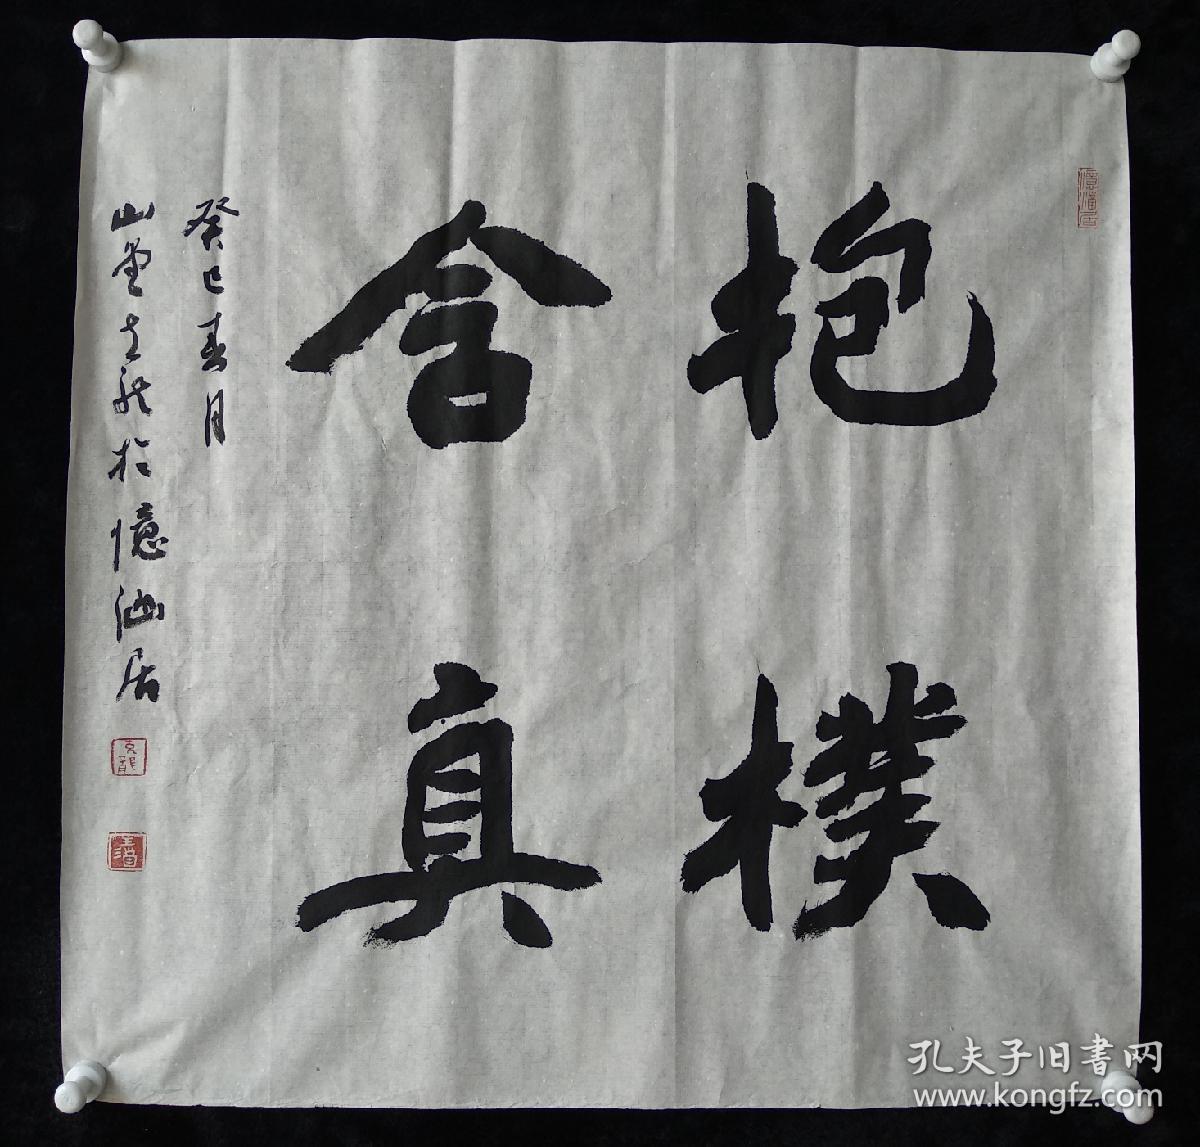 抱樸
含真
癸巳春月
山堂玄龍於憶汕居
孔夫子旧书网
www.kongfz.com